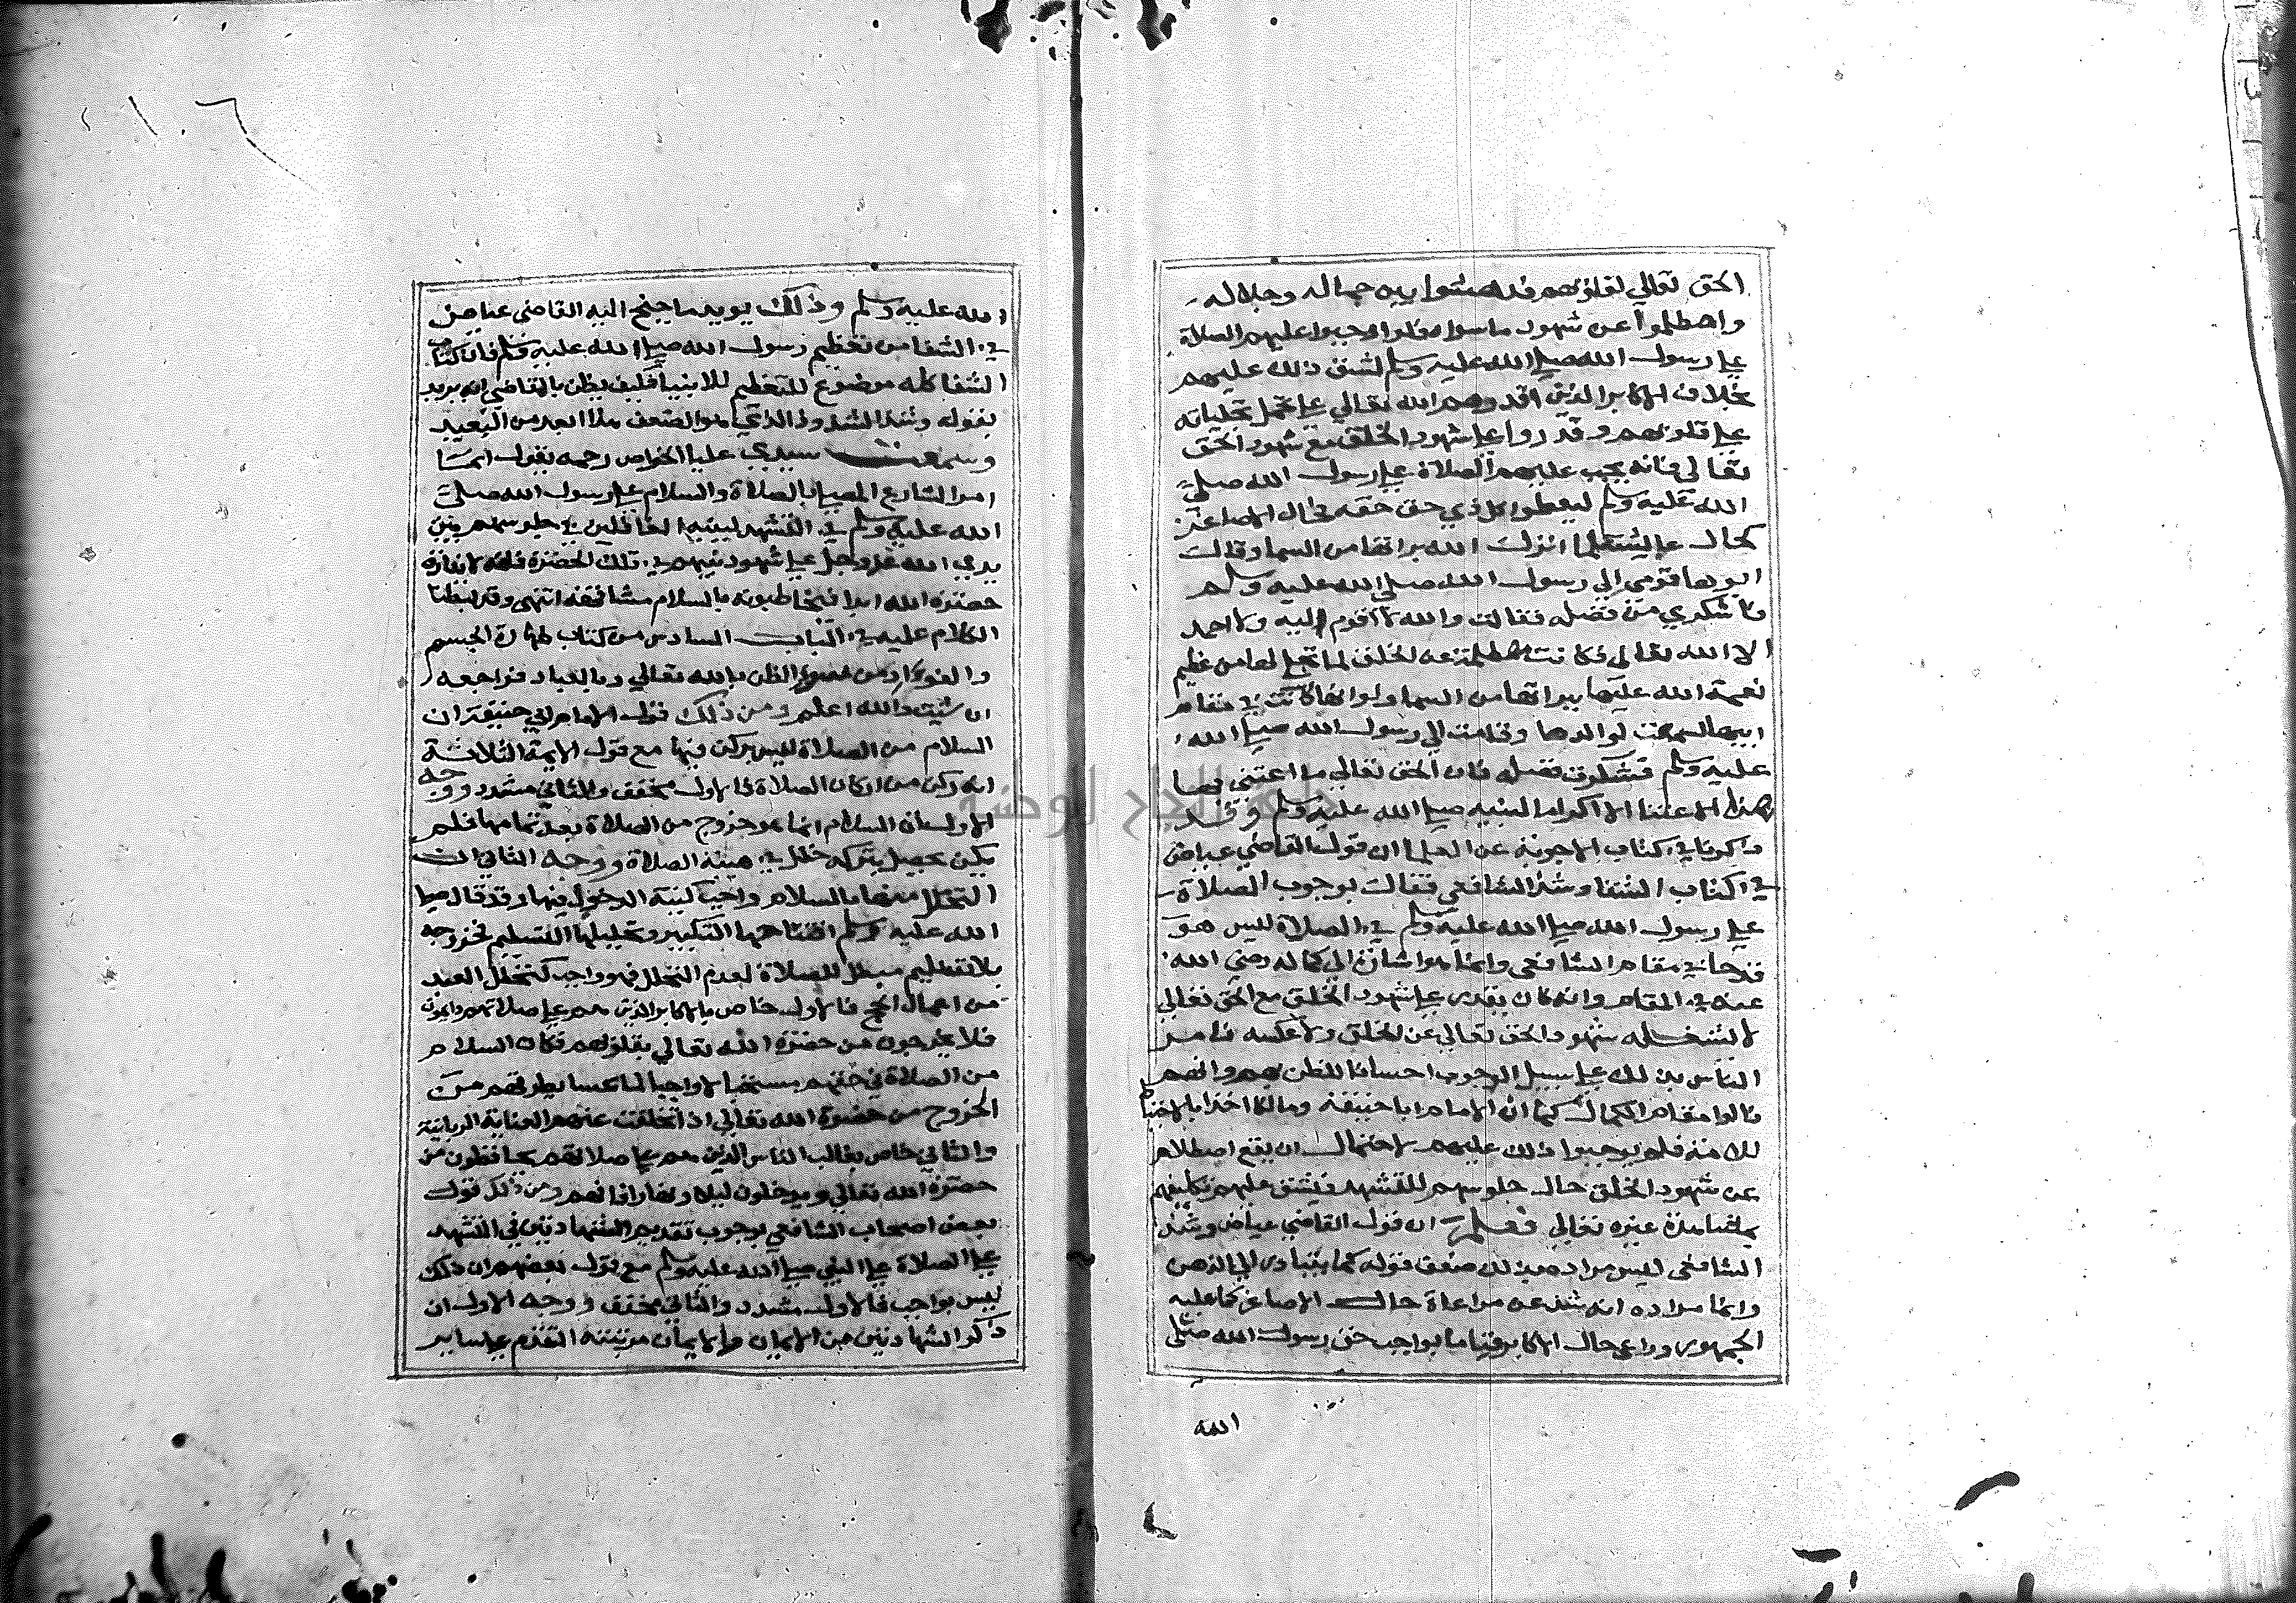 الحق تعالي لقلوبهم فدهشوا بين جماله وجلاله
واصطلموا عن شهود ما سواه فلو اوجبوا عليهم الصلاة
علي رسول الله صلي الله عليه وسلم لشق ذلك عليهم
بخلاف الاكابر الذين اقدرهم الله تعالي علي تحمل تجلياته
علي قلوبهم وقدروا علي شهود الخلق مع شهود الحق
تعالي فانه يجب عليهم الصلاة علي رسول الله صلي
الله عليه وسلم ليعطوا كل ذي حق حقه فحال الاصاغر
كحال عايشة لما انزل الله براتها من السما وقال
ابوها قومي الي رسول الله صلي الله عليه وسلم
فاشكري من فضله فقالت والله لا اقوم اليه ولا احمد
الا الله تعالي فكانت مصطلمة عن الخلق لما تجلي لها من عظيم
نعمة الله عليها ببراتها من السما ولو انها كانت في مقام
ابيها لسمعت لوالدها وقامت الي رسول الله صلي الله
عليه وسلم فتشكرت فضله فان الحق تعالي ما اعتني بها
هذا الاعتنا الا اكراما لنبيه صلي الله عليه وسلم وقد
ذكرنا في كتاب الاجوبة عن العلما ان قول القاضي عياض
في كتاب الشفا وشذ الشافعي فقال بوجوب الصلاة
علي رسول الله صلي الله عليه وسلم في الصلاة ليس هو
قدحا في مقام الشافعي وانما هو اشارة الي كماله رضي الله
عنه في المقام وانه كان يقدر علي شهود الخلق مع الحق تعالي
لا يشغله شهود الحق تعالي عن الخلق ولا عكسه فامر
الناس بذلك علي سبيل الوجوب احسانا للظن بهم وانهم
نالوا مقام الكمال كما ان الامام ابا حنيفة ومالكا اخذا بالاحتياط
للامة فلم يوجبوا ذلك عليهم لاحتمال ان يقع اصطلام
عن شهود الخلق حال جلوسهم للتشهد فيشق عليهم تكليفهم
بمشاهدة غيره تعالي فعلم ان قول القاضي عياض وشذ
الشافعي ليس مراده بذلك ضعف قوله كما يتبادر الي الذهن
وانما مراده انه شذ عن مراعاة حال الاصاغر كما عليه
الجمهور وراعي حال الاكابر وقياما بواجب حق رسول الله صلي
الله
الله عليه وسلم وذلك يويد ما جنح اليه القاضي عياض
في الشفا من تعظيم رسول الله صلي الله عليه وسلم فان كتاب
الشفا كله موضوع للتعظيم للانبيا فكيف يظن بالقاضي انه يريد
بقوله وشذ الشذوذ الذي هو الضعف هذا ابعد من البعيد
وسمعت سيدي عليا الخواص رحمه يقول انما
امر الشارع المصلي بالصلاة والسلام علي رسول الله صلي
الله عليه وسلم في التشهد لينبه الغافلين في جلوسهم بين
يدي الله عز وجل علي شهود نبيهم في تلك الحضرة فانه لا يفارق
حضرة الله ابدا فيخاطبونه بالسلام مشافهة انتهي وقد بسطنا
الكلام عليه في الباب السادس من كتاب طهارة الجسم
والفواد من سو الظن بالله تعالي وبالعباد فراجعه
ان شيت والله اعلم ومن ذلك قول الامام ابي حنيفة ان
السلام من الصلاة ليس بركن فيها مع قول الايمة الثلاثة
انه ركن من اركان الصلاة فالاول مخفف والثاني مشدد ووجه
الاول ان السلام انما هو خروج من الصلاة بعد تمامها فلم
يكن يحصل بتركه خلل في هيئة الصلاة ووجه الثاني ان
التحلل منها بالسلام واجب كنية الدخول فيها وقد قال صلي
الله عليه وسلم افتتاحها التكبير وتحليلها التسليم فخروجه
بلا تسليم مبطل للصلاة لعدم التحلل فهو واجب كتحلل العبد
من اعمال الحج فالاول خاص بالاكابر الذين هم علي صلاتهم دايمون
فلا يخرجون من حضرة الله تعالي بقلوبهم فكان السلام
من الصلاة في حقهم مستحبا لا واجبا لما عسا يطرقهم من
الخروج من حضرة الله تعالي اذا تخلفت عنهم العناية الربانية
والثاني خاص بغالب الناس الذين هم علي صلاتهم يحافظون من
حضرة الله تعالي ويدخلون ليلا ونهارا فافهم ومن ذلك قول
بعض اصحاب الشافعي بوجوب تقديم الشهادتين في التشهد
علي الصلاة علي النبي صلي الله عليه وسلم مع قول بعضهم ان ذلك
ليس بواجب فالاول مشدد والثاني مخفف ووجه الاول ان
ذكر الشهادتين من الايمان والايمان مرتبته التقدم علي ساير